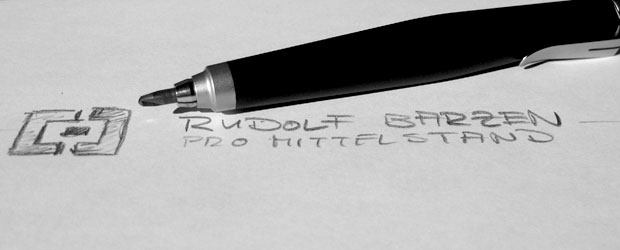 RUDOLF BARZEN
PRO MITTELSTAND